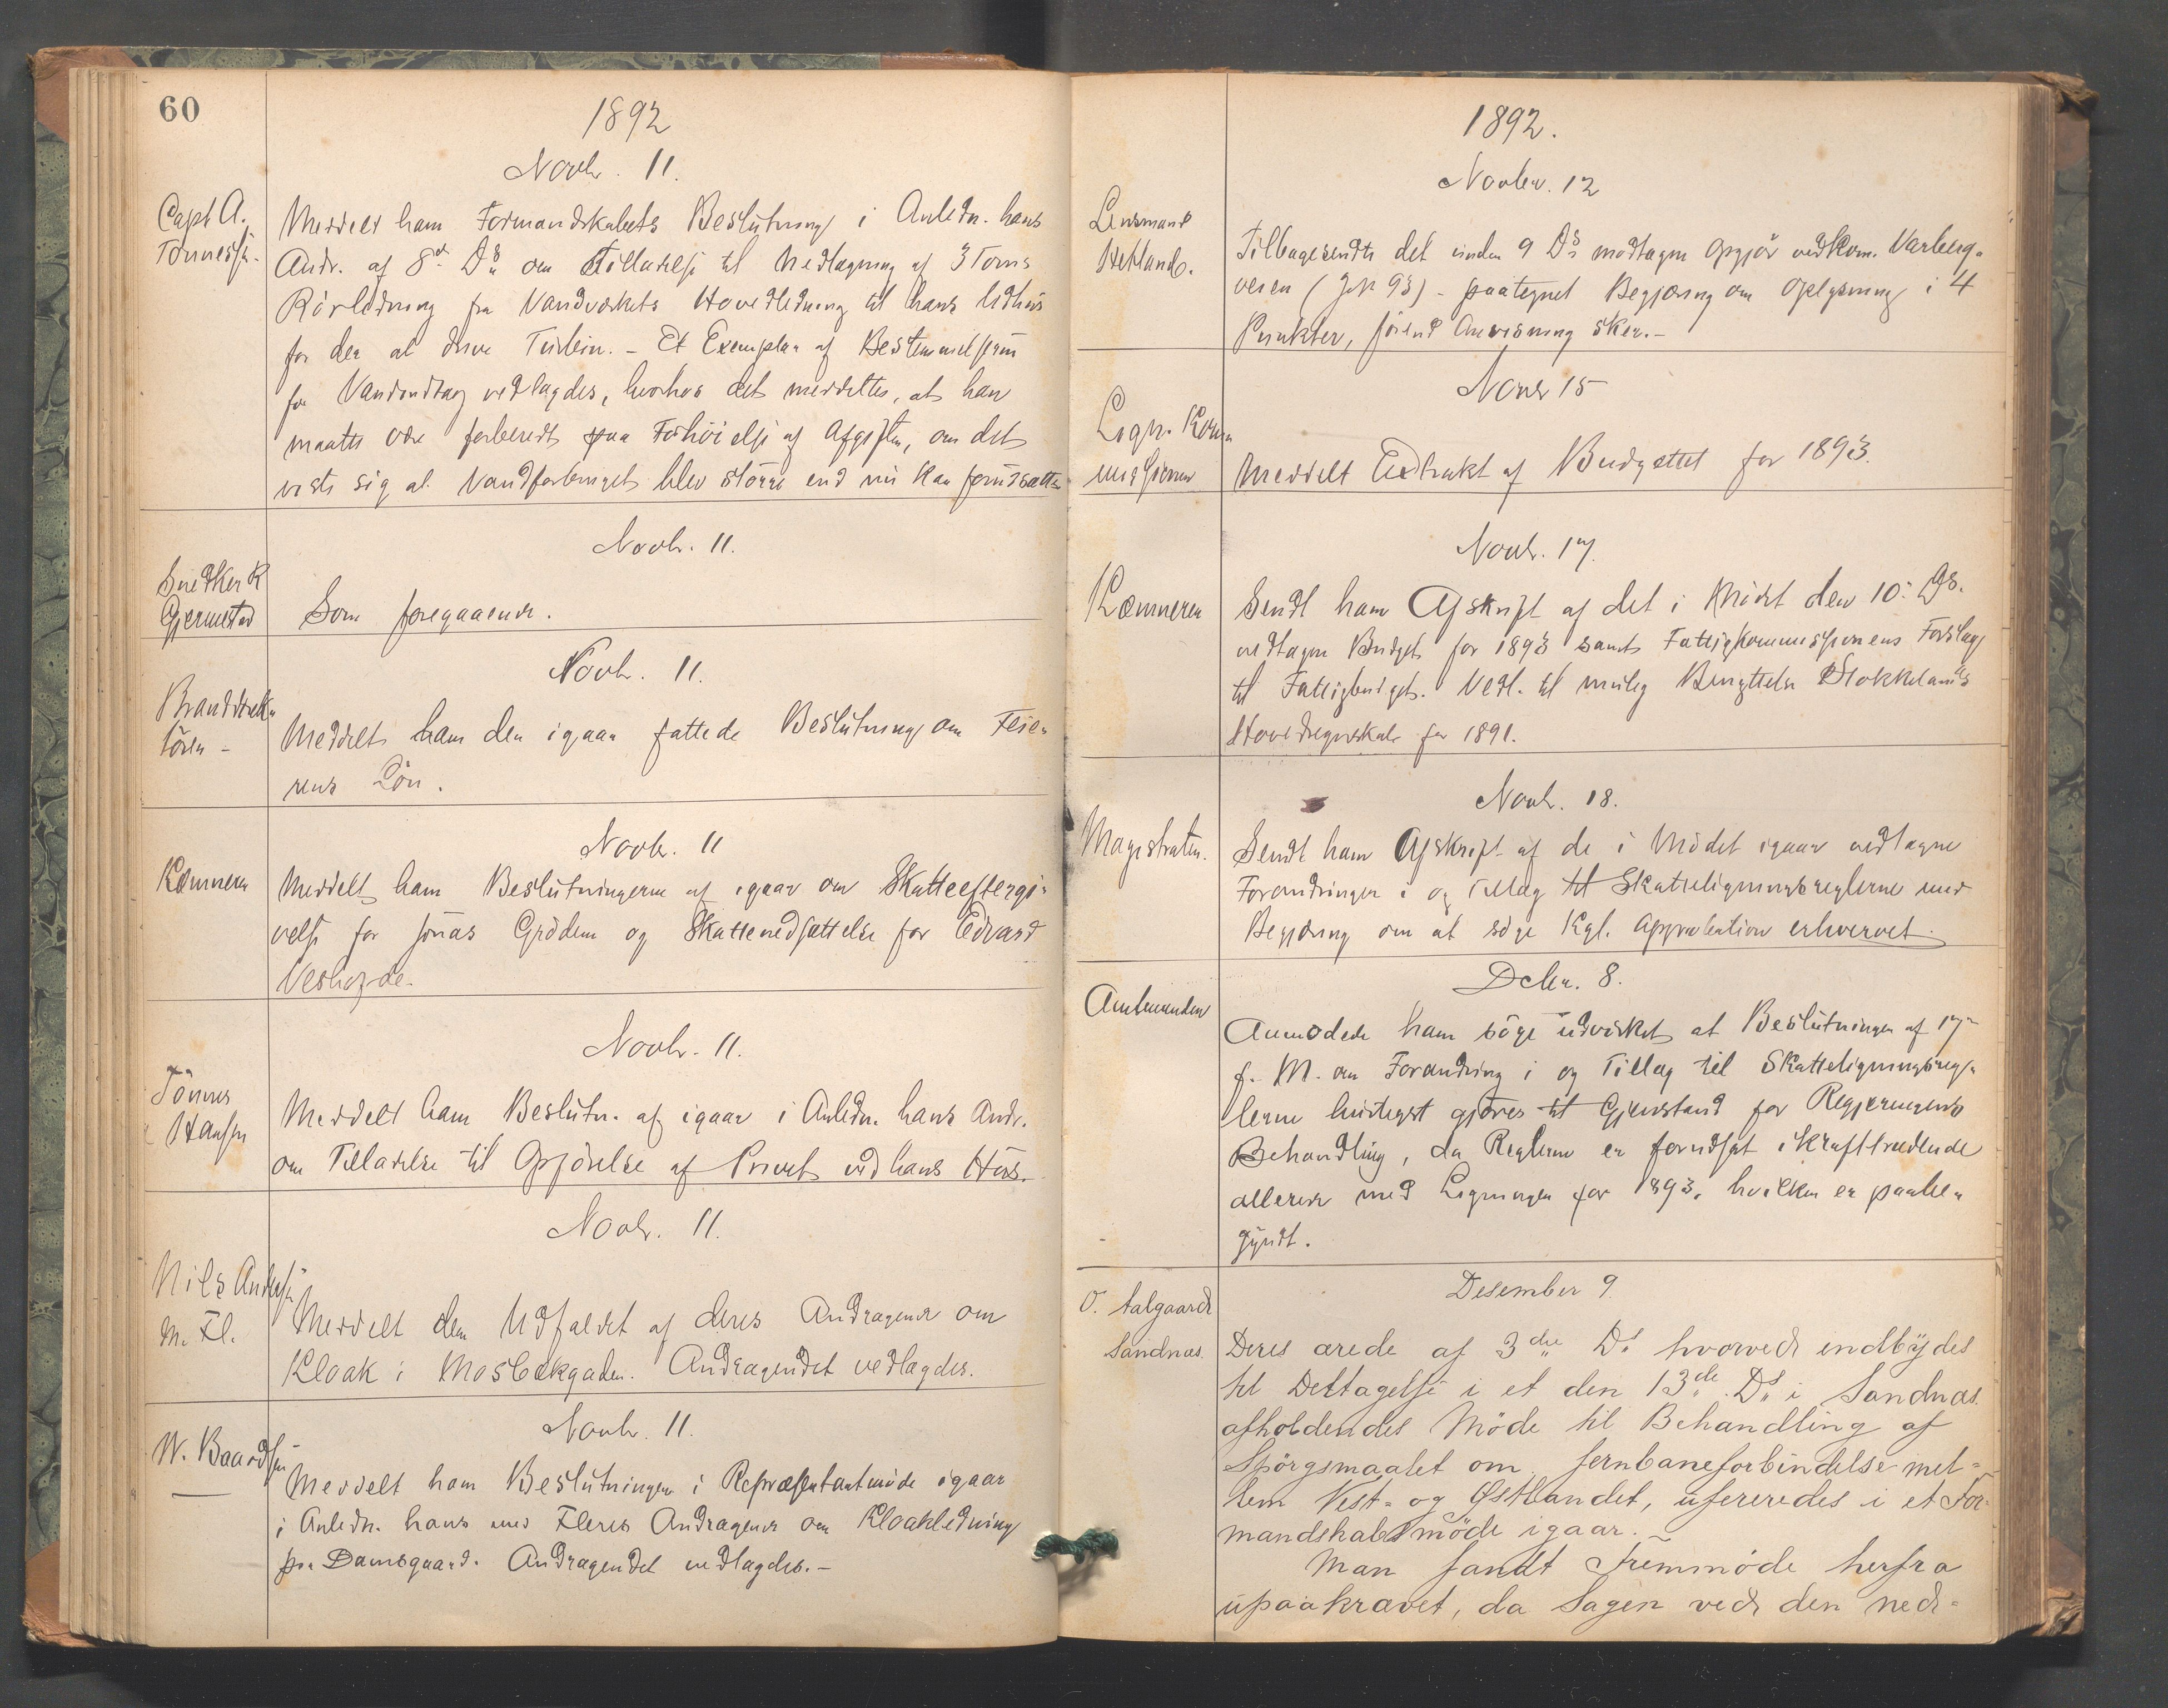 60
1892
Novbr. 11.
Capt A.
Tønnessen.
Meddelt ham Formandskabets Beslutning i Anledn. hans
Andr. af 8de Ds. om Tilladelse til Nedlægning af 3 Toms
Rørledning fra Vandværkets Hovedledning til hans
for der at drive Turbin. – Et Exemplar af Bestemmelserne
for Vandudtag vedlagdes, hvorhos det meddeltes, at han
maatte være forberedt paa Forhøielse af Afgiften, om det
viste sig at Vandforbruget blev større end nu kan forudsættes
Novbr. 11.
Snedker R
Gjermestad
Som foregaaende.
Novbr. 11.
Branddirek-
tøren –
Meddelt ham den igaar fattede Beslutning om Feie-
rens Løn.
Novbr. 11
Kæmneren
Meddelt ham Beslutningerne af igaar om Skatteeftergi-
velse for Jonas Grødem og Skattenedsættelse for Edvard
Novbr. 11.
Tønnes
Hansen
Meddelt ham Beslutn. af igaar i Anledn. hans Andr.
om Tilladelse til Opførelse af Privet ved hans Hus.
Novbr. 11.
Nils Andersen
m. Fl.
Meddelt dem Udfaldet af deres Andragende om
Kloak i Mosbækgaden. Andragendet vedlagdes.
Novbr. 11.
W. Baardsen
Meddelt ham Beslutningen i Repræsentantmøde igaar
i Anledn. hans med Fleres Andragende om Kloakledning
fra Damsgaard. Andragendet vedlagdes. –
1892.
Novber. 12
Lensmand
Hetland.
Tilbagesendte det under 9 Ds. modtagne Opgjør vedkom. Varberg-
veien (Jnr 93) – paategnet Begjæring om Oplysning i 4
Punkter, førend Anvisning sker. –
Novbr 15
Lign. Kom-
missionen
Meddelt Extrakt af Budgettet for 1893.
Novbr. 17.
Kæmneren
Sendt ham Afskrift af det i Mødet den 10. Ds.
vedtagne Budget for 1893 samt Fattigkommissionens Forslag
til Fattigbudget. Vedl. til mulig Benyttelse Stokkelands
Hovedregnskab for 1891.
Novbr. 18.
Magistraten.
Sendt ham Afskrift af de i Mødet igaar vedtagne
Forandringer i og Tillæg til Skatteligningsreglerne med
Begjæring om at søge Kgl. Approbation erhvervet.
Debr. 8.
Amtmanden
Anmodede ham søge udvirket at Beslutningen af 17de
f. M. om Forandring i og Tillæg til Skatteligningsreg-
lerne hurtigst gjøres til Gjenstand for Regjeringens
Behandling, da Reglerne er forudsat ikrafttrædende
allerede med Ligningen for 1893, hvilken er paabe-
gyndt.
Desember 9.
O. Aalgaard
Sandnæs.
Deres ærede af 3die Ds. hvorved indbydes
til Deltagelse i et den 13de Ds. i Sandnæs
afholdendes Møde til Behandling af
Spørgsmaalet om Jernbaneforbindelse mel-
lem Vest- og Østlandet, refereredes i et For-
mandskabsmøde igaar. –
Man fandt Fremmøde herfra
upaakrævet, da Sagen ved den ned-